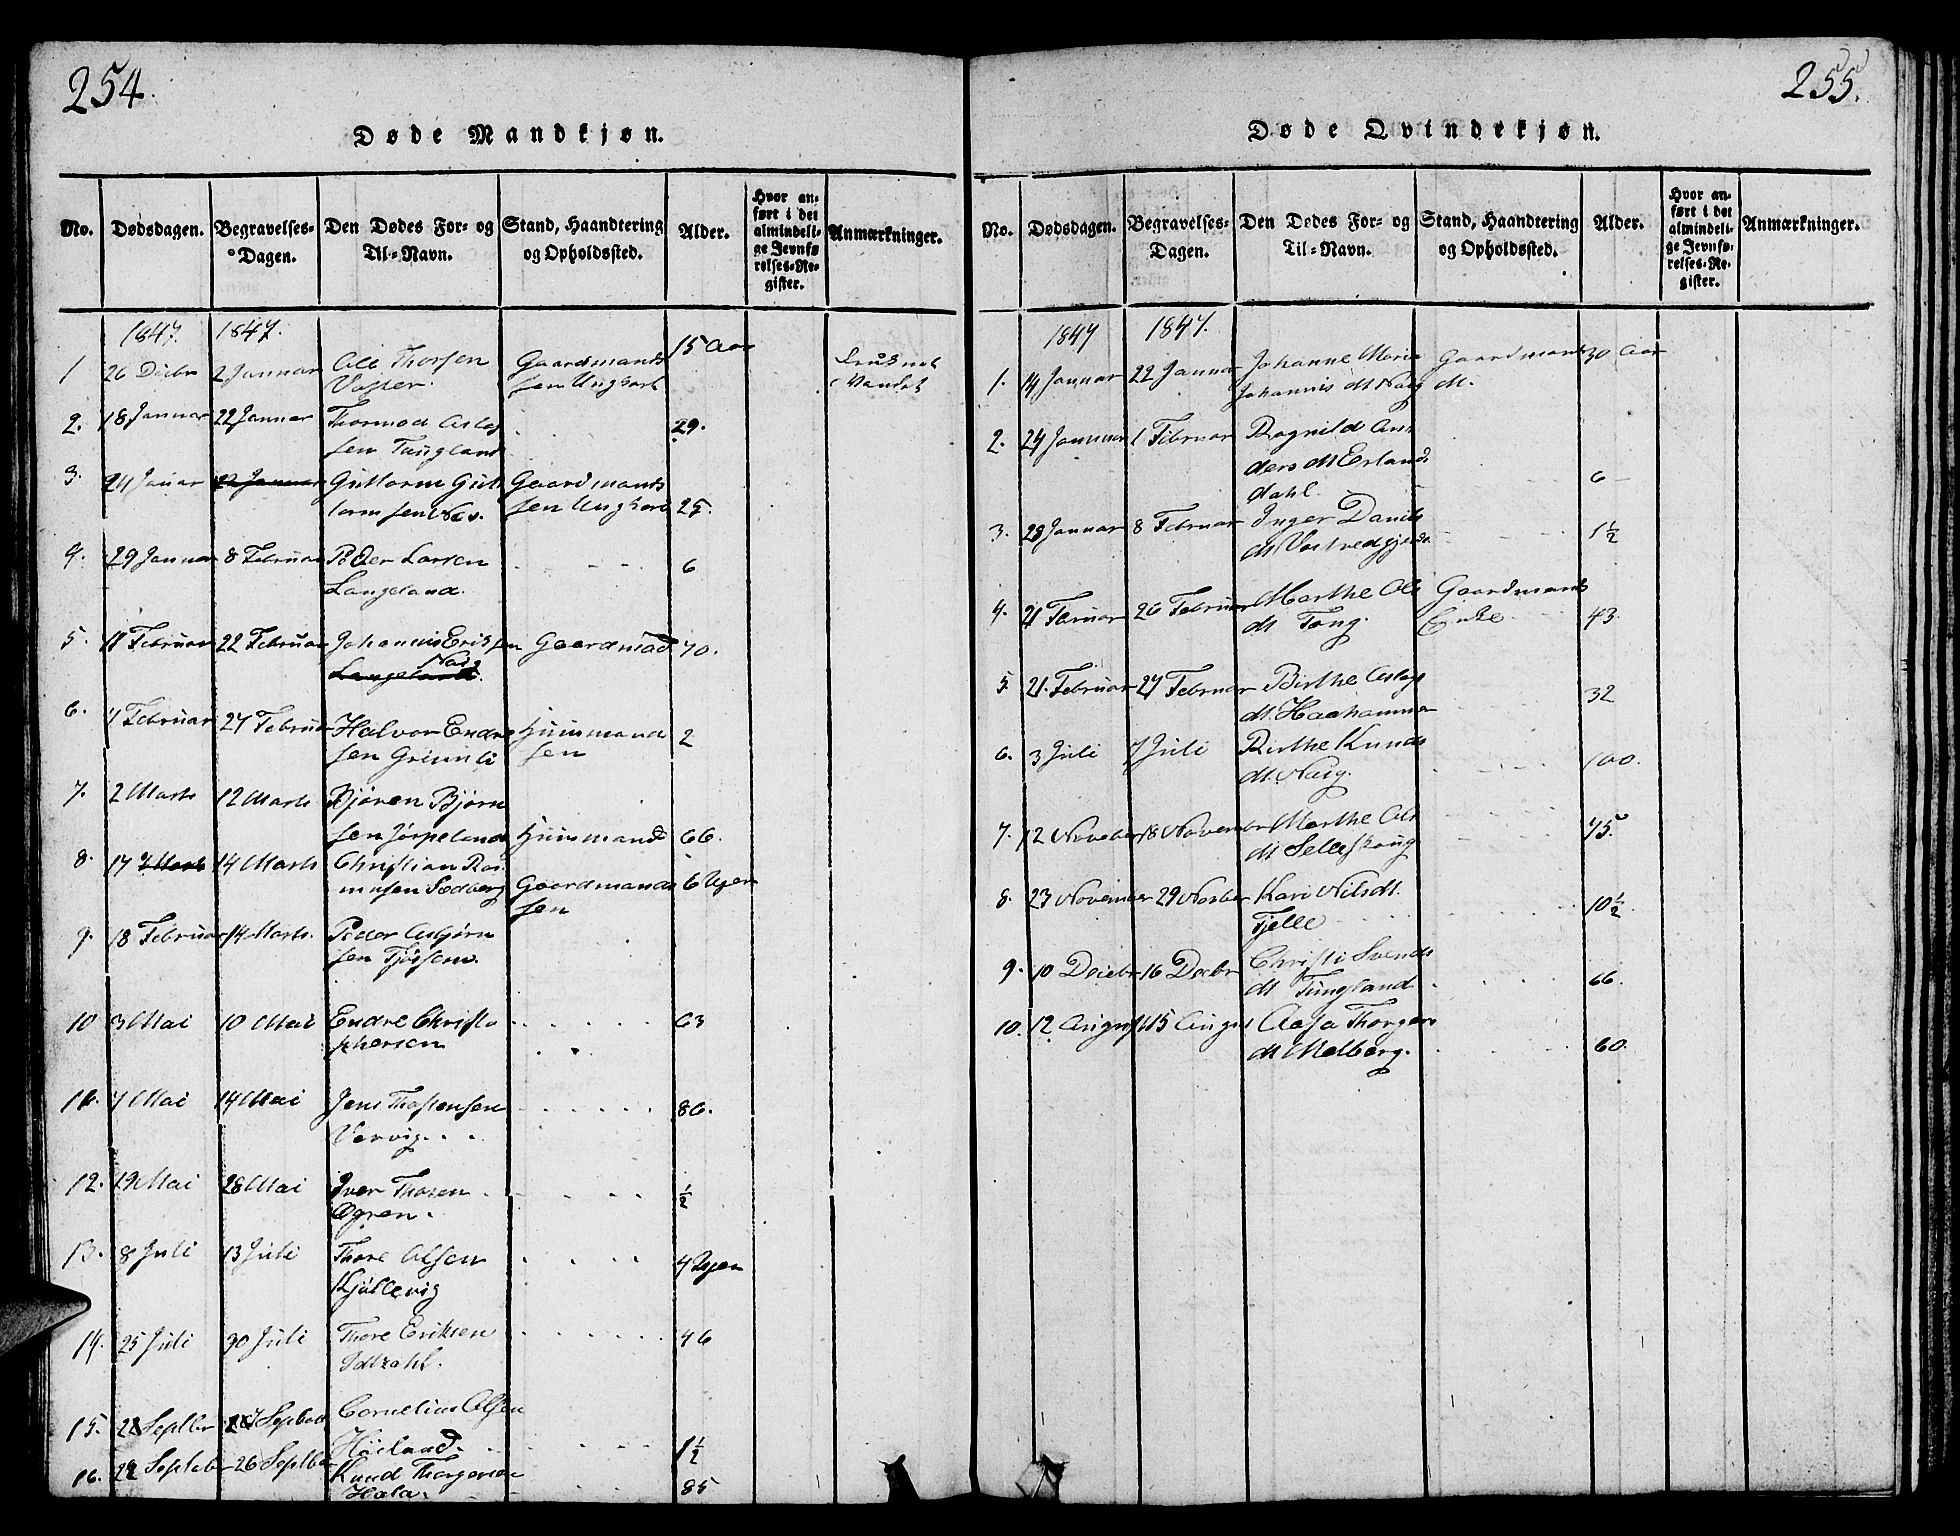 254.
Døde Mandkjøn.
No. Dødsdagen. Begravelses-Dagen. Den Dødes For- og Til-Navn. Stand, Haandtering og Opholdssted. Alder. Hvor anført i det almindelige Jevnførelses-Register. Anmærkninger.
1847. 1847.
1 26 Decbr 2 Januar Ole Thorsen Gaardmands 15 Aar
sen Ungkarl
2. 18 Januar 22 Januar Thormod Aslag 29.
sen Tungland
3. 24 Januar 22 Januar Guttorm Gut Gaardmands
tormsen sen Ungkarl 25.
4. 29 Januar 8 Februar Peder Larsen 6
Langeland.
5. 11 Februar 22 Februar Johannis Eriksen Gaardmad 70.
Nag
Langeland
6. 7 Februar 27 Februar Halvor Endre Huusmand 2
sen sen
7. 2 Marts 12 Marts Bjøren Bjørn
sen Jørpeland Huusmand 66.
8. 17 Marts 14 Marts Christian Ras
musen Sedberg Gaardmands 6 Uger
sen
9. 18 Februar 14 Marts. Peder Asbjørn
sen
10 3 Mai 10 Mai Endre Christo 63
phersen
11. 7 Mai 14 Mai Jens Thostensen 86.
Vervig
12. 19 Mai 28 Mai Iver Thosen ½
13. 8 Juli 13 Juli Thore Olsen 4 Uger
Kjøllevig
14. 25 Juli 30 Juli Thore Eriksen 46
15. 22 Septbr 27 Septbr Cornelius Olsen
Høiland 1½
16. 22 Septbr 26 Septbr Knud Thorgersen
Hala 85
255.
Døde Qvindekjøn.
No. Dødsdagen. Begravelses-Dagen. Den Dødes For- og Til-Navn. Stand, Haandtering og Opholdssted. Alder. Hvor anført i det almindelige Jevnførelses-Register. Anmærkninger.
1847 1847.
1. 14 Januar 22 Januar Johanne Maria Gaardmands 30 Aar
Johannis dt Nag dt.
2. 24 Januar 1 Februar Ragnild An
ders dt Erlands
dahl. 6
3. 28 Januar 8 Februar Inger Daniels 1½
dt
4. 21 26 Februar Marthe Ols Gaardmands
dt Tang. Enke 43.
5. 21. Februar 27 Februar Birthe Aslags 32
dt. Haahammer
6. 3 Juli 7 Juli Birthe Knuds 100.
dt. Nag.
7. 12 Noveber 18 November Marthe Ols 75.
dt Selleskoug
8. 23 November 29 Novber Kari Nilsdt. 10½
Fjelle
9. 10 Decbr 16 Decbr Christi Svends
dt Tungland. 66.
10. 12 August 15 August Aasa Thorgers
dt Melberg. 60.